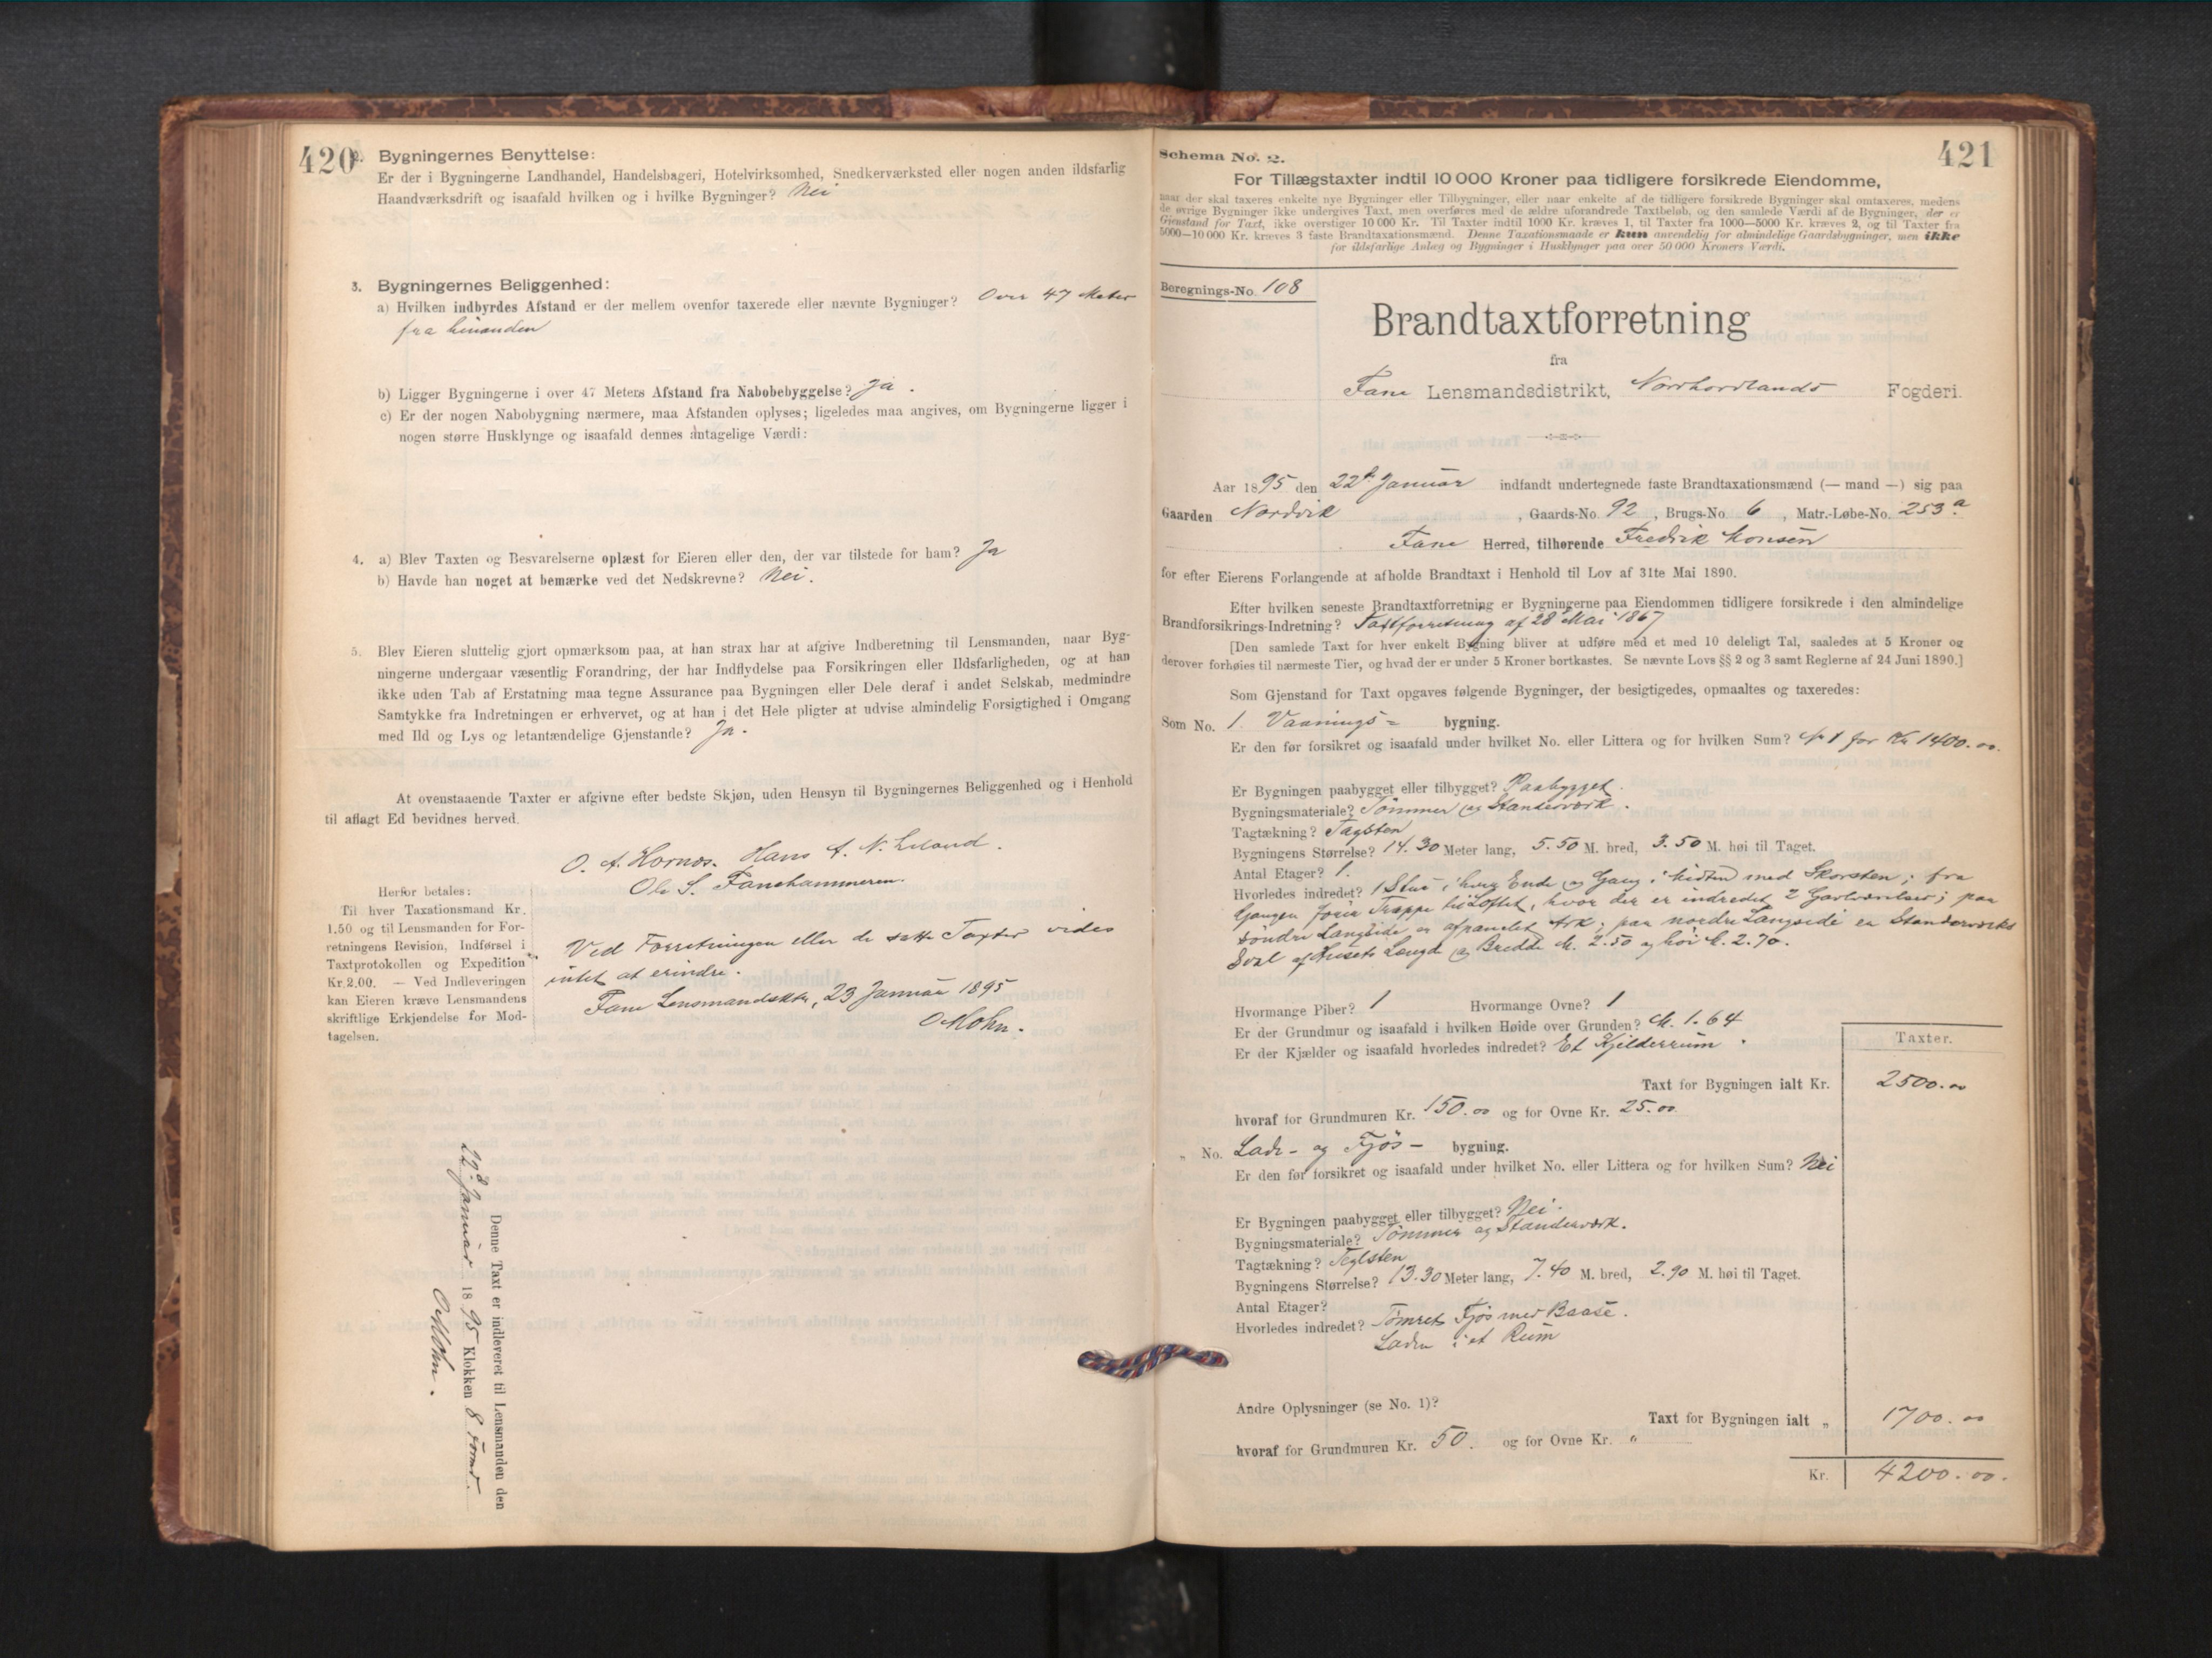 420
2. Bygningernes Benyttelse:
Er der i Bygningerne Landhandel, Handelsbageri, Hotelvirksomhed, Snedkerværksted eller nogen anden ildsfarlig
Haandværksdrift og isaafald hvilken og i hvilke Bygninger? Nei
3. Bygningernes Beliggenhed:
a) Hvilken indbyrdes Afstand er der mellem ovenfor taxerede eller nævnte Bygninger? Over 47 Meter
fra hinanden
b) Ligger Bygningerne i over 47 Meters Afstand fra Nabobebyggelse? Ja.
c) Er der nogen Nabobygning nærmere, maa Afstanden oplyses; ligeledes maa angives, om Bygningerne ligger i
nogen større Husklynge og isaafald dennes antagelige Værdi:
4. a) Blev Taxten og Besvarelserne oplæst for Eieren eller den, der var tilstede for ham? Ja
b) Havde han noget at bemærke ved det Nedskrevne? Nei.
5. Blev Eieren sluttelig gjort opmærksom paa, at han strax har at afgive Indberetning til Lensmanden, naar Byg-
ningerne undergaar væsentlig Forandring, der har Indflydelse paa Forsikringen eller Ildsfarligheden, og at han
ikke uden Tab af Erstatning maa tegne Assurance paa Bygningen eller Dele deraf i andet Selskab, medmindre
Samtykke fra Indretningen er erhvervet, og at han i det Hele pligter at udvise almindelig Forsigtighed i Omgang
med Ild og Lys og letantændelige Gjenstande? Ja.
At ovenstaaende Taxter er afgivne efter bedste Skjøn, uden Hensyn til Bygningernes Beliggenhed og i Henhold
til aflagt Ed bevidnes herved.
O. A. Hornes. Hans A. N.
Ole S. Fanehammeren.
Herfor betales:
Til hver Taxationsmand Kr.
1.50 og til Lensmanden for For-
retningens Revision, Indførsel i
Taxtprotokollen og Expedition
Kr. 2.00. — Ved Indleveringen
kan Eieren kræve Lensmandens
skriftlige Erkjendelse for Mod-
tagelsen.
Ved Forretningen eller de satte Taxter vides
intet at erindre.
Fane Lensmandsktr, 23 Januar 1895
O Mohn.
Denne Taxt er indleveret til Lensmanden den
22d Januar 1895 Klokken 8 Form.
O Mohn.
421
Schema No. 2.
For Tillægstaxter indtil 10 000 Kroner paa tidligere forsikrede Eiendomme,
naar der skal taxeres enkelte nye Bygninger eller Tilbygninger, eller naar enkelte af de tidligere forsikrede Bygninger skal omtaxeres, medens
de øvrige Bygninger ikke undergives Taxt, men overføres med de ældre uforandrede Taxtbeløb, og den samlede Værdi af de Bygninger, der er
Gjenstand for Taxt, ikke overstiger 10 000 Kr. Til Taxter indtil 1000 Kr. kræves 1, til Taxter fra 1000—5000 Kr. kræves 2, og til Taxter fra
5000—10 000 Kr. kræves 3 faste Brandtaxationsmænd. Denne Taxationsmaade er kun anvendelig for almindelige Gaardsbygninger, men ikke
for ildsfarlige Anlæg og Bygninger i Husklynger paa over 50 000 Kroners Værdi.
Beregnings-No. 108
Brandtaxtforretning
fra
Fane Lensmandsdistrikt, Nordhordlands Fogderi.
Aar 1895 den 22d Januar indfandt undertegnede faste Brandtaxationsmænd (— mand —) sig paa
Gaarden Nordvik, Gaards-No. 92, Brugs-No. 6, Matr.-Løbe-No. 253a
Fane Herred, tilhørende Fredrik Monsen
for efter Eierens Forlangende at afholde Brandtaxt i Henhold til Lov af 31te Mai 1890.
Efter hvilken seneste Brandtaxtforretning er Bygningerne paa Eiendommen tidligere forsikrede i den almindelige
Brandforsikrings-Indretning? Taxtforretning af 28 Mai 1867
[Den samlede Taxt for hver enkelt Bygning bliver at udføre med et med 10 deleligt Tal, saaledes at 5 Kroner og
derover forhøies til nærmeste Tier, og hvad der er under 5 Kroner bortkastes. Se nævnte Lovs §§ 2 og 3 samt Reglerne af 24 Juni 1890.]
Som Gjenstand for Taxt opgaves følgende Bygninger, der besigtigedes, opmaaltes og taxeredes:
Som No. 1. Vaanings= bygning.
Er den før forsikret og isaafald under hvilket No. eller Littera og for hvilken Sum? No 1 for Kr 1400.00.
Er Bygningen paabygget eller tilbygget? Paabygget.
Bygningsmateriale? Tømmer og Standerværk.
Tagtækning? Tagsten
Bygningens Størrelse? 14.30 Meter lang, 5.50 M. bred, 3.50 M. høi til Taget.
Antal Etager? 1.
Hvorledes indredet? 1 Stue i hver Ende og Gang i Midten med Skorsten; fra
Gangen fører Trappe til Loftet, hvor der er indredet 2 Gavlværelser; paa
søndre Langside er afpanelet Ark; paa nordre Langside en Standerværks
Sval af Husets Længde og Bredde M. 2.50 og høi M. 2.70.
Hvormange Piber? 1 Hvormange Ovne? 1
Er der Grundmur og isaafald i hvilken Høide over Grunden? M. 1.64
Er der Kjælder og isaafald hvorledes indredet? Et Kjelderrum.
Taxter.
Taxt for Bygningen ialt Kr. 2500.00
hvoraf for Grundmuren Kr. 150.00 og for Ovne Kr. 25.00
„ No. Lade- og Fjøs- bygning.
Er den før forsikret og isaafald under hvilket No. eller Littera og for hvilken Sum? Nei
Er Bygningen paabygget eller tilbygget? Nei.
Bygningsmateriale? Tømmer og Standerværk.
Tagtækning? Teglsten
Bygningens Størrelse? 13.30 Meter lang, 7.40 M. bred, 2.90 M. høi til Taget.
Antal Etager?
Hvorledes indredet? Tømret Fjøs med Baase.
Laden i et Rum
Andre Oplysninger (se No. 1)?
Taxt for Bygningen ialt „ 1700.00
hvoraf for Grundmuren Kr. 50. og for Ovne Kr. „
Kr. 4200.00.